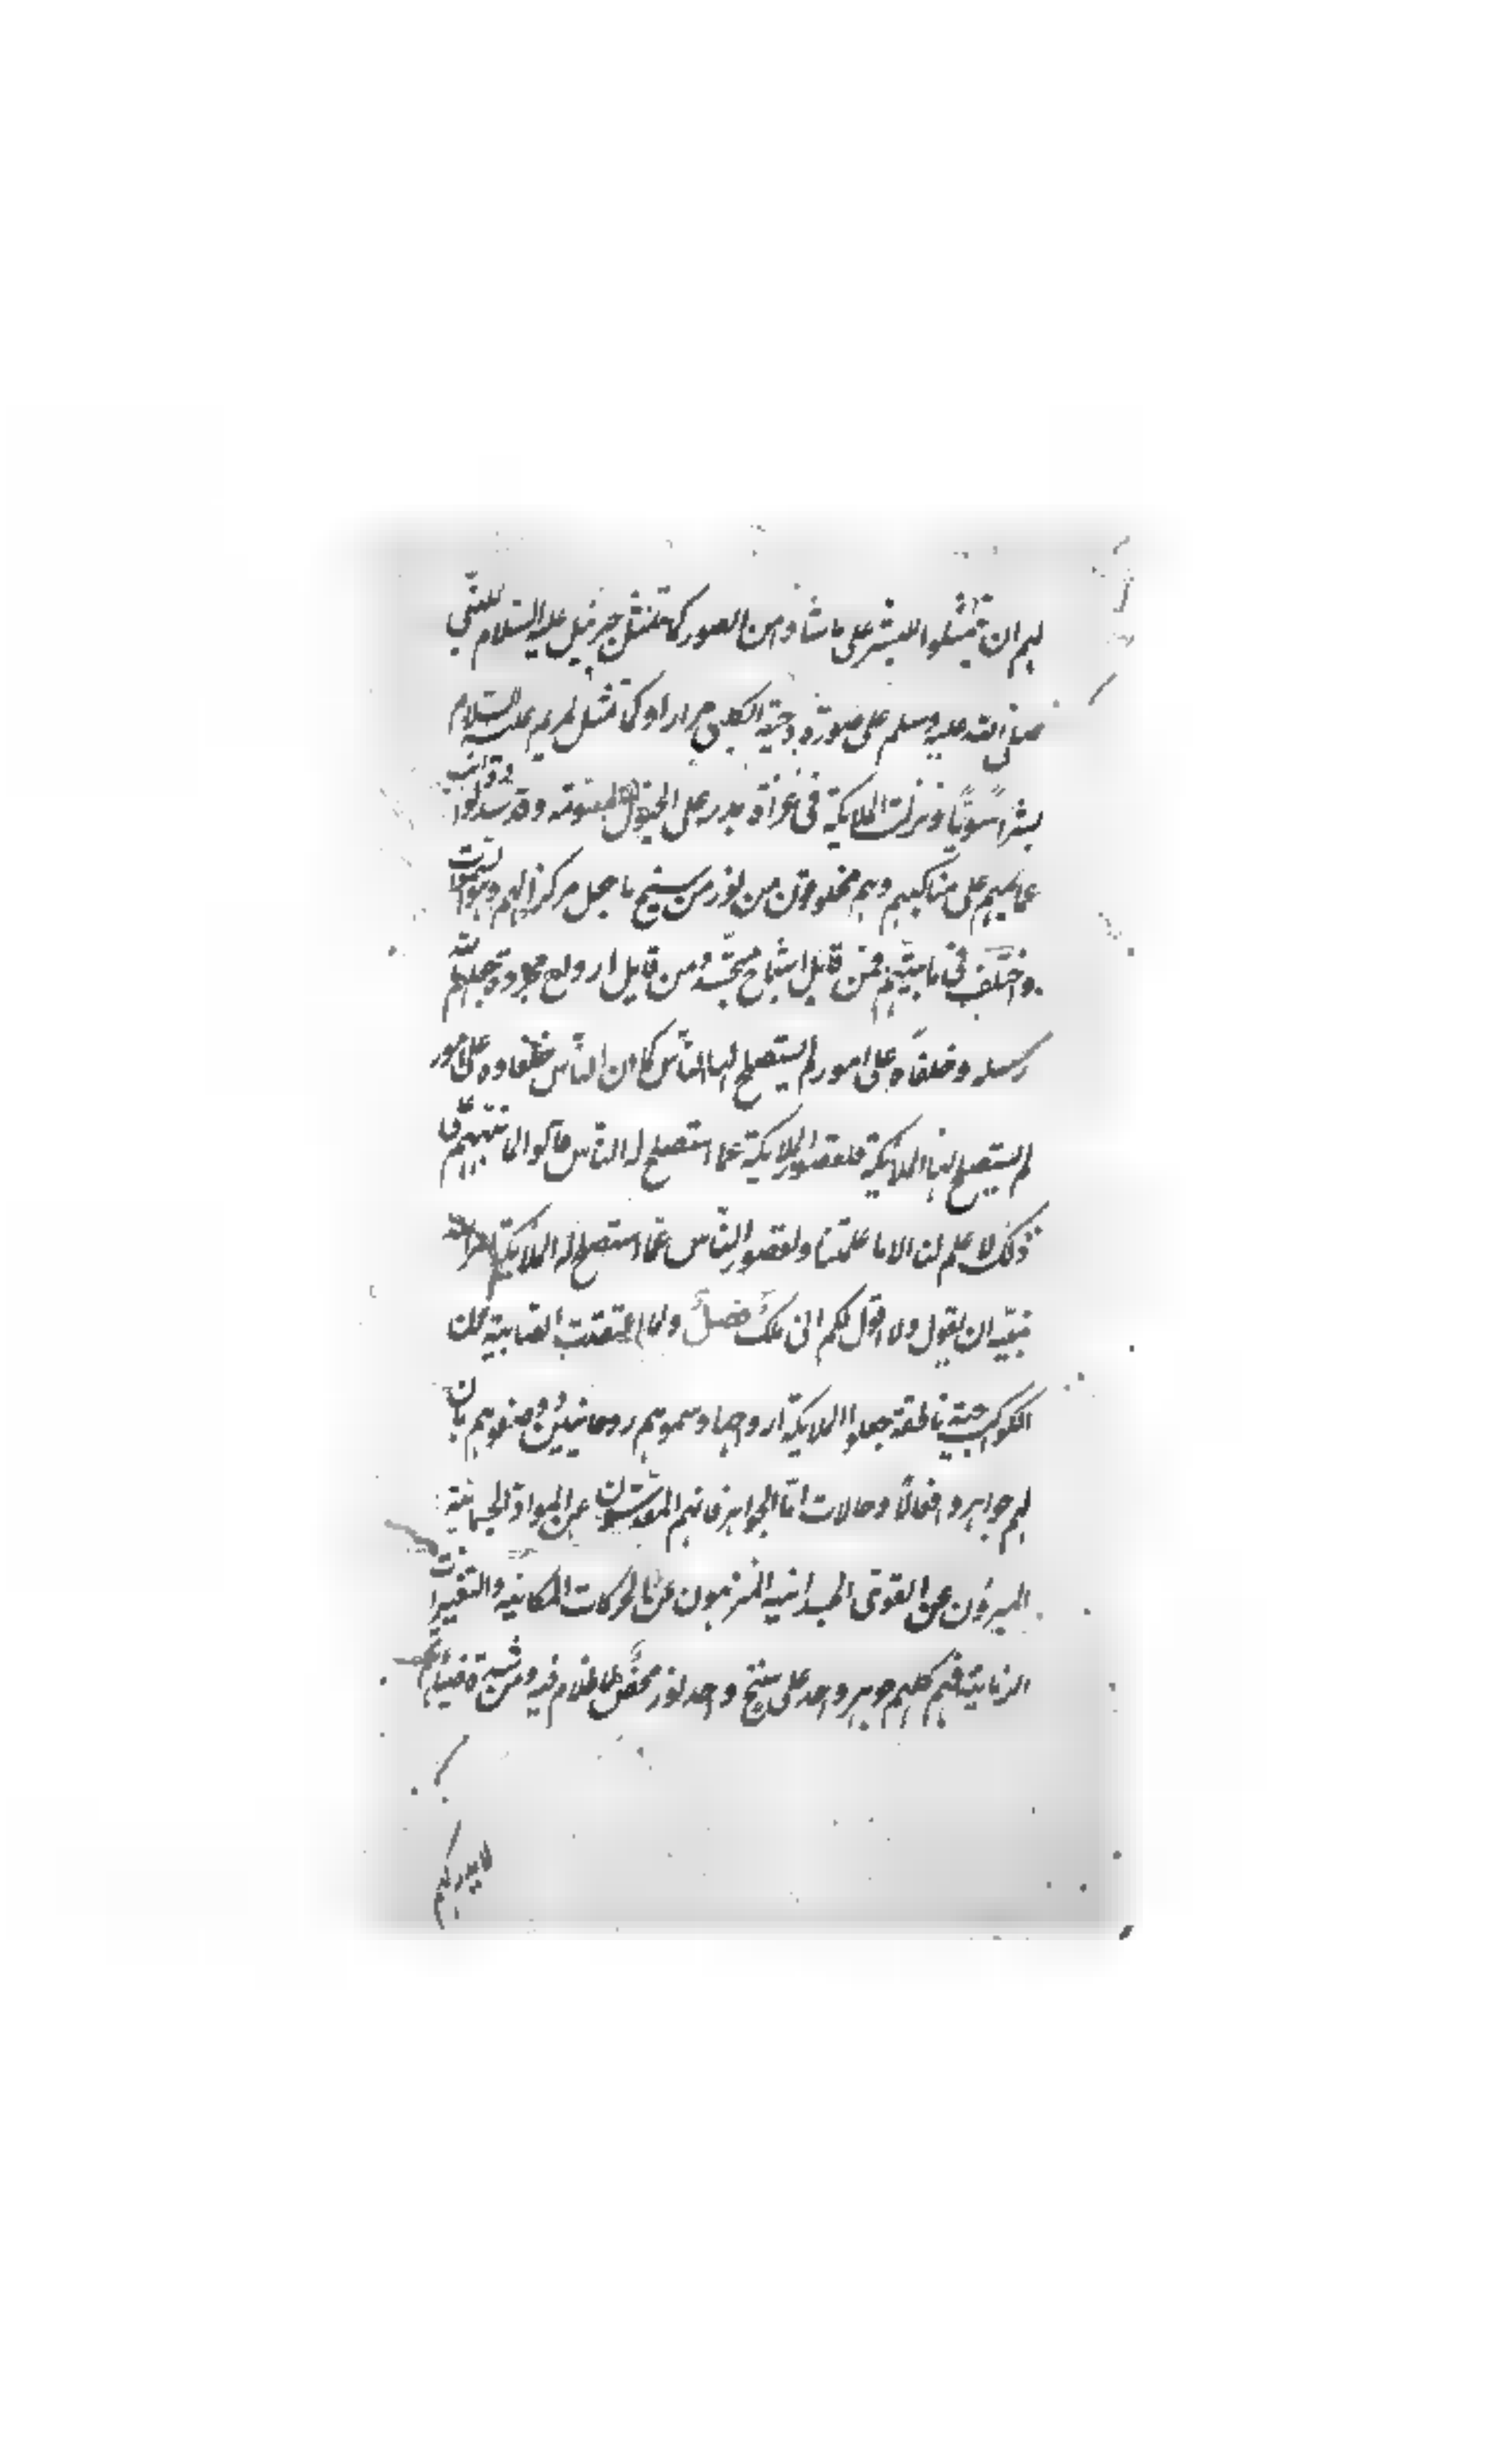 لهم ان يتمثلوا للبشر على ما شاؤا من الصور كما تمثل جبرئيل عليه السلام للنبي
صلى الله عليه وسلم على صورة دحية الكلبي مرارا وكما تمثل لمريم عليه السلام
بشرا سويا ونزلت الملايكة في غزاة بدر على الخيول المسومة وقد سدلوا ذوائب
عمايمهم على مناكبهم وهم مخلوقون من نور من سنخ ما جعل مركز
واختلف في ماهيتهم فمن قايل اشباح مجسدة ومن قايل ارواح مجردة جعلهم الله
رسله وخلفاه على امور لم يستصلح لها الناس كما ان الناس خلفاوه على امور
لم يستصلح لها الملايكة فلقصور الملايكة عما استصلح له الناس قالوا لما نبههم على
ذلك لا علم لنا الا ما علمتنا ولقصور الناس عما استصلح له الملايكة امر الله
نبيه ان يقول ولا اقول لكم اني ملك فصل ولما اعتقدت الصابية ان
الكواكب حية ناطقة جعلوا الملايكة ارواحها وسموهم روحانيين ووصفوهم بان
لهم جواهر وافعالا وحالات اما الجواهر فانهم المقدسون عن المواد الجسمانية
المبرؤن عن القوى الجسدانية المنزهون عن الحركات المكانية والتغيرات
الزمانية فهم كلهم جوهر واحد على سنخ واحد نور محض لا ظلام فيه ومن شدة ضيائهم
لا يدركهم